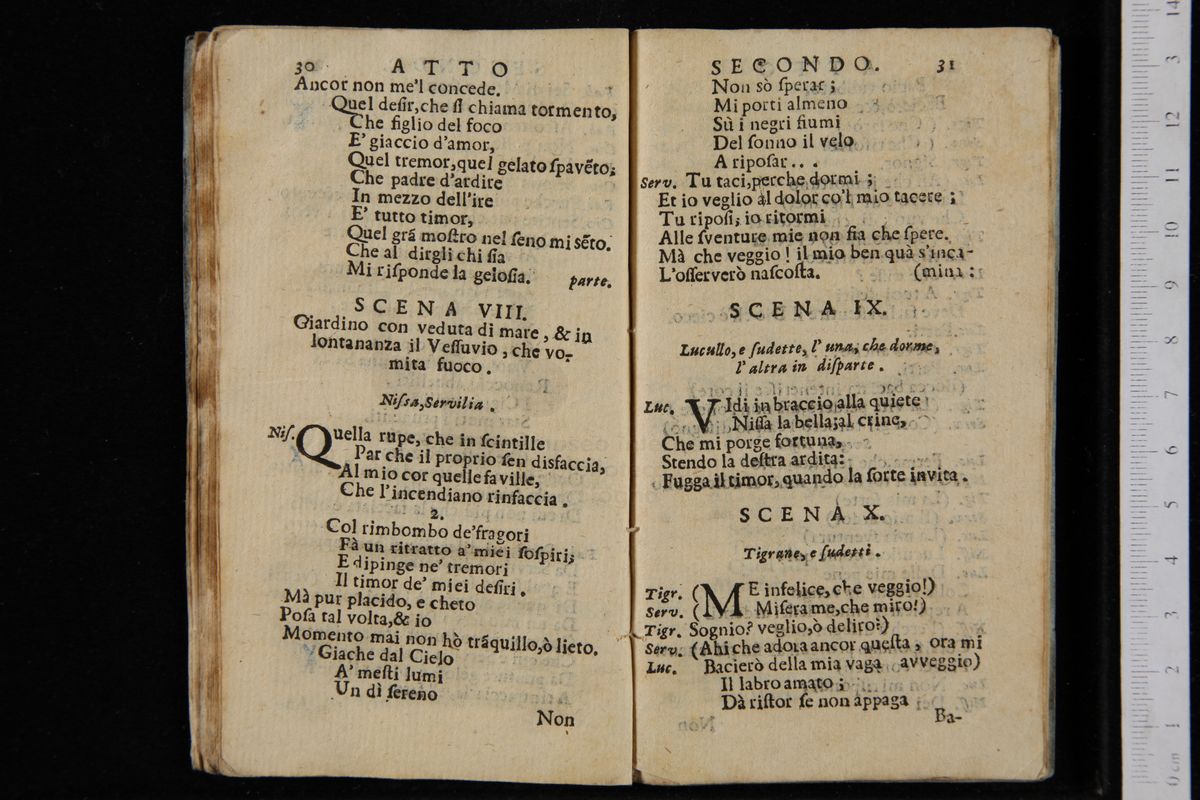 30 ATTO
Ancor non me'l concede.
Quel desir, che ſi chiama tormento,
Che figlio del foco
E' giaccio d'amor,
Quel tremor, quel gelato ſpavẽto;
Che padre d'ardire
In mezzo dell'ire
E' tutto timor,
Quel grã moſtro nel ſeno mi sẽto.
Che al dirgli chi ſia
Mi riſponde la geloſia. parte.
SCENA VIII.
Giardino con veduta di mare, & in
lontananza il Veſſuvio, che vo-
mita fuoco.
Niſsa, Servilia.
Niſ. Quella rupe, che in ſcintille
Par che il proprio ſen disfaccia,
Al mio cor quelle faville,
Che l'incendiano rinfaccia.
2.
Col rimbombo de' fragori
Fà un ritratto a' miei ſoſpiri;
E dipinge ne' tremori
Il timor de' miei deſiri.
Mà pur placido, e cheto
Poſa tal volta, & io
Momento mai non hò trãquillo, ò lieto.
Giache dal Cielo
A' meſti lumi
Un dì ſereno
Non
SECONDO. 31
Non sò ſperar;
Mi porti almeno
Sù i negri fiumi
Del ſonno il velo
A ripoſar...
Serv. Tu taci, perche dormi;
Et io veglio al dolor co'l mio tacere;
Tu ripoſi; io ritormi
Alle ſventure mie non fia che ſpere.
Mà che veggio! il mio ben quà s'inca-
L'oſſerverò naſcoſta. (mina:
SCENA IX.
Lucullo, e ſudette, l'una, che dorme,
l'altra in diſparte.
Luc. VIdi in braccio alla quiete
Niſſa la bella; al crine,
Che mi porge fortuna,
Stendo la deſtra ardita:
Fugga il timor, quando la ſorte invita.
SCENA X.
Tigrane, e ſudetti.
Tigr. (ME infelice, che veggio!)
Serv. (Miſera me, che miro!)
Tigr. Sognio? veglio, ò deliro?)
Serv. (Ahi che adora ancor queſta, ora mi
Luc. Bacierò della mia vaga avveggio)
Il labro amato;
Dà riſtor ſe non appaga
Ba-